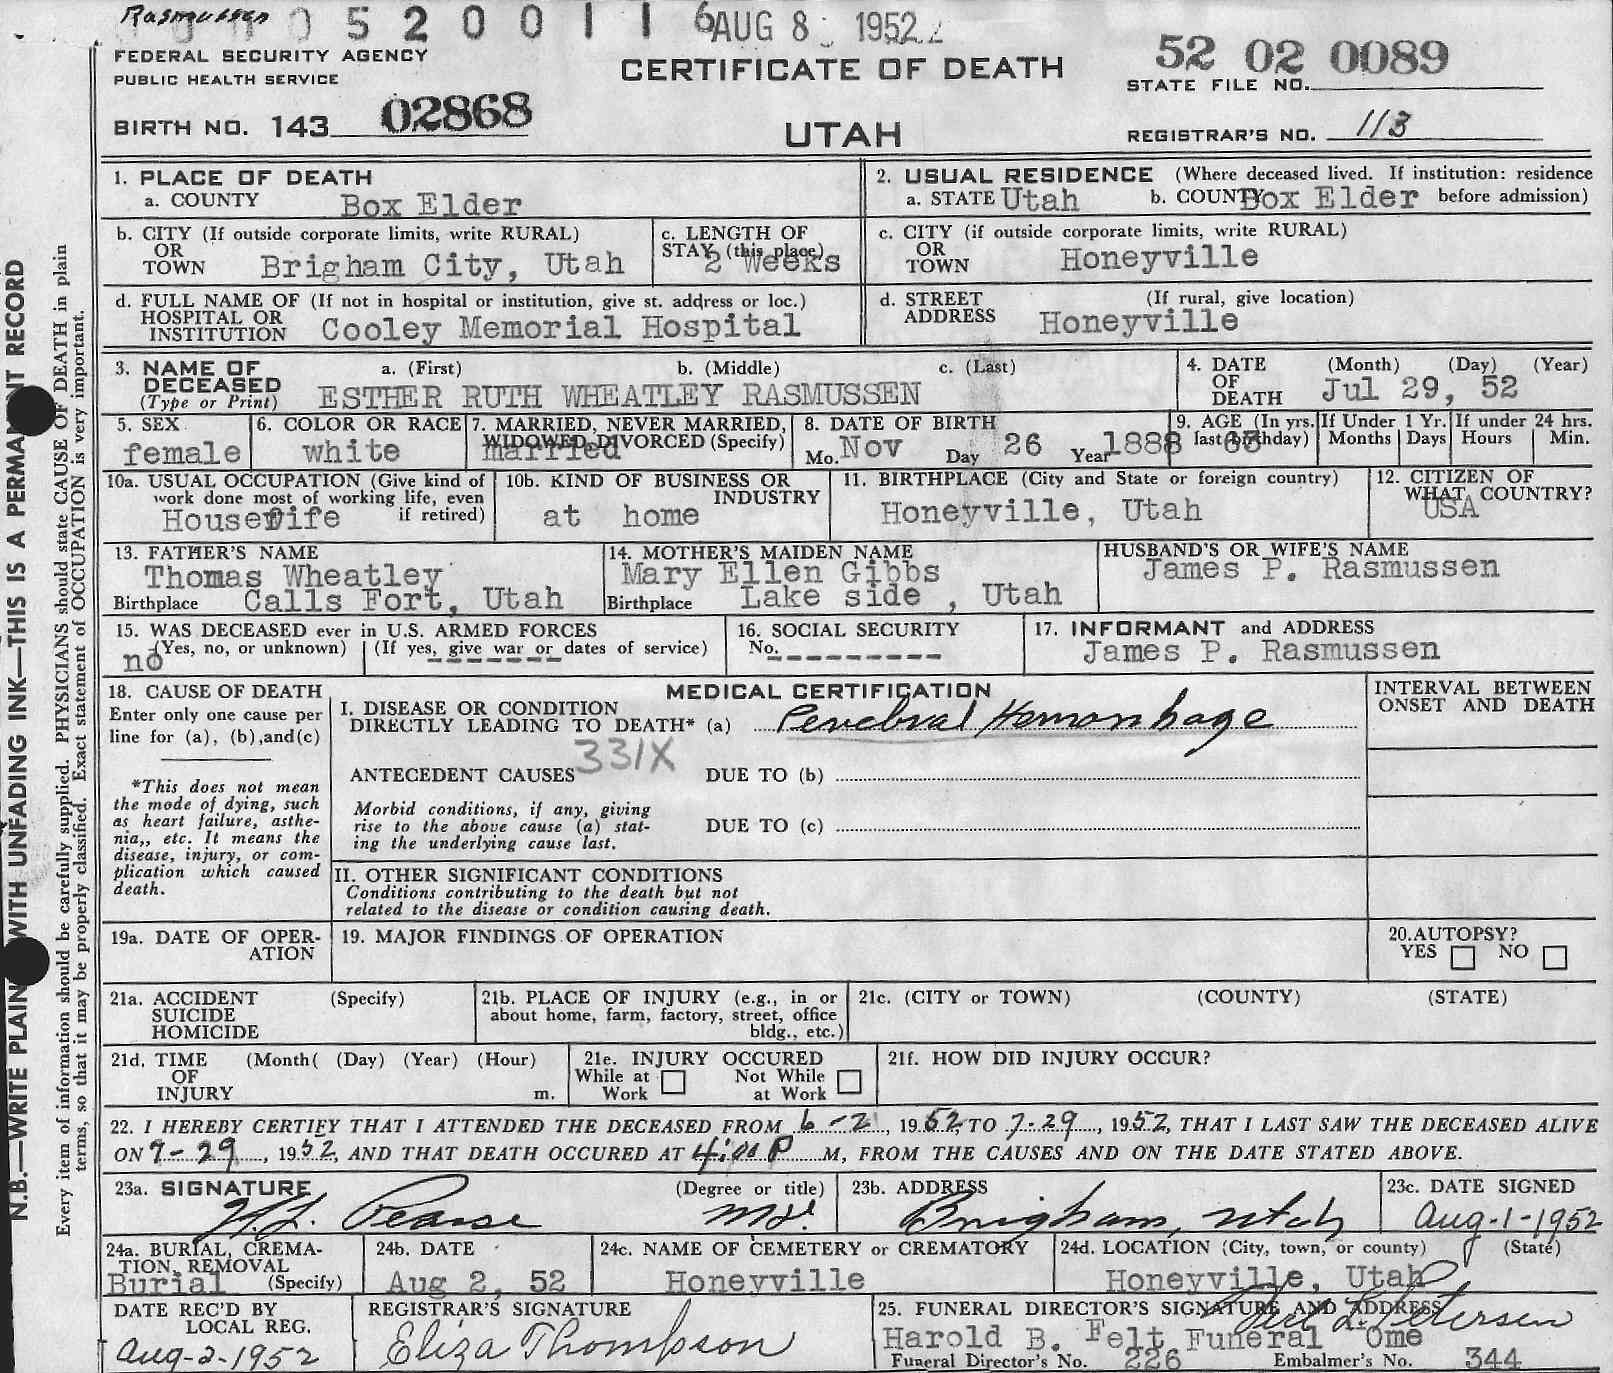 Rasmussen
0 5 2 0 0 1 1 6 AUG 8 1952
FEDERAL SECURITY AGENCY
PUBLIC HEALTH SERVICE
CERTIFICATE OF DEATH
52 02 0089
STATE FILE NO.
BIRTH NO. 143 02868
UTAH
REGISTRAR'S NO. 113
1. PLACE OF DEATH
a. COUNTY Box Elder
2. USUAL RESIDENCE (Where deceased lived. If institution: residence
a. STATE Utah b. COUNTY Box Elder before admission)
b. CITY (If outside corporate limits, write RURAL)
OR
TOWN Brigham City, Utah
c. LENGTH OF
STAY (this place)
2 Weeks
c. CITY (if outside corporate limits, write RURAL)
OR
TOWN Honeyville
d. FULL NAME OF (If not in hospital or institution, give st. address or loc.)
HOSPITAL OR
INSTITUTION Cooley Memorial Hospital
d. STREET (If rural, give location)
ADDRESS Honeyville
3. NAME OF a. (First) b. (Middle) c. (Last)
DECEASED
(Type or Print) ESTHER RUTH WHEATLEY RASMUSSEN
4. DATE (Month) (Day) (Year)
OF
DEATH Jul 29, 52
5. SEX
female
6. COLOR OR RACE
white
7. MARRIED, NEVER MARRIED,
WIDOWED, DIVORCED (Specify)
married
8. DATE OF BIRTH
Mo. Nov Day 26 Year 1888
9. AGE (In yrs. last birthday) 63
If Under 1 Yr. Months Days
If under 24 hrs. Hours Min.
10a. USUAL OCCUPATION (Give kind of
work done most of working life, even
if retired)
Housewife
10b. KIND OF BUSINESS OR
INDUSTRY
at home
11. BIRTHPLACE (City and State or foreign country)
Honeyville, Utah
12. CITIZEN OF
WHAT COUNTRY?
USA
13. FATHER'S NAME
Thomas Wheatley
Birthplace Calls Fort, Utah
14. MOTHER'S MAIDEN NAME
Mary Ellen Gibbs
Birthplace Lake side , Utah
HUSBAND'S OR WIFE'S NAME
James P. Rasmussen
15. WAS DECEASED ever in U.S. ARMED FORCES
(Yes, no, or unknown) (If yes, give war or dates of service)
no
16. SOCIAL SECURITY
No.
17. INFORMANT and ADDRESS
James P. Rasmussen
18. CAUSE OF DEATH
Enter only one cause per
line for (a), (b),and(c)
*This does not mean
the mode of dying, such
as heart failure, asthe-
nia,, etc. It means the
disease, injury, or com-
plication which caused
death.
MEDICAL CERTIFICATION
I. DISEASE OR CONDITION
DIRECTLY LEADING TO DEATH* (a) Cerebral Hemorrhage
331X
ANTECEDENT CAUSES DUE TO (b)
Morbid conditions, if any, giving
rise to the above cause (a) stat-
ing the underlying cause last.
DUE TO (c)
II. OTHER SIGNIFICANT CONDITIONS
Conditions contributing to the death but not
related to the disease or condition causing death.
INTERVAL BETWEEN
ONSET AND DEATH
19a. DATE OF OPER-
ATION
19. MAJOR FINDINGS OF OPERATION
20.AUTOPSY?
YES NO
21a. ACCIDENT (Specify)
SUICIDE
HOMICIDE
21b. PLACE OF INJURY (e.g., in or
about home, farm, factory, street, office
bldg., etc.)
21c. (CITY or TOWN) (COUNTY) (STATE)
21d. TIME (Month( (Day) (Year) (Hour)
OF
INJURY m.
21e. INJURY OCCURED
While at Work Not While at Work
21f. HOW DID INJURY OCCUR?
22. I HEREBY CERTIFY THAT I ATTENDED THE DECEASED FROM 6-2, 1952, TO 7-29, 1952, THAT I LAST SAW THE DECEASED ALIVE
ON 7-29, 1952, AND THAT DEATH OCCURED AT 4:00 P M, FROM THE CAUSES AND ON THE DATE STATED ABOVE.
23a. SIGNATURE (Degree or title)
Pearse MD.
23b. ADDRESS
Brigham, Utah
23c. DATE SIGNED
Aug-1-1952
24a. BURIAL, CREMA-
TION, REMOVAL
Burial (Specify)
24b. DATE
Aug 2, 52
24c. NAME OF CEMETERY or CREMATORY
Honeyville
24d. LOCATION (City, town, or county) (State)
Honeyville, Utah
DATE REC'D BY
LOCAL REG.
Aug-2-1952
REGISTRAR'S SIGNATURE
Eliza Thompson
25. FUNERAL DIRECTOR'S SIGNATURE AND ADDRESS
L. Petersen
Harold B. Felt Funeral Ome
Funeral Director's No. 226 Embalmer's No. 344
N.B.—WRITE PLAIN WITH UNFADING INK—THIS IS A PERMANENT RECORD
Every item of information should be carefully supplied. PHYSICIANS should state CAUSE OF DEATH in plain
terms, so that it may be properly classified. Exact statement of OCCUPATION is very important.